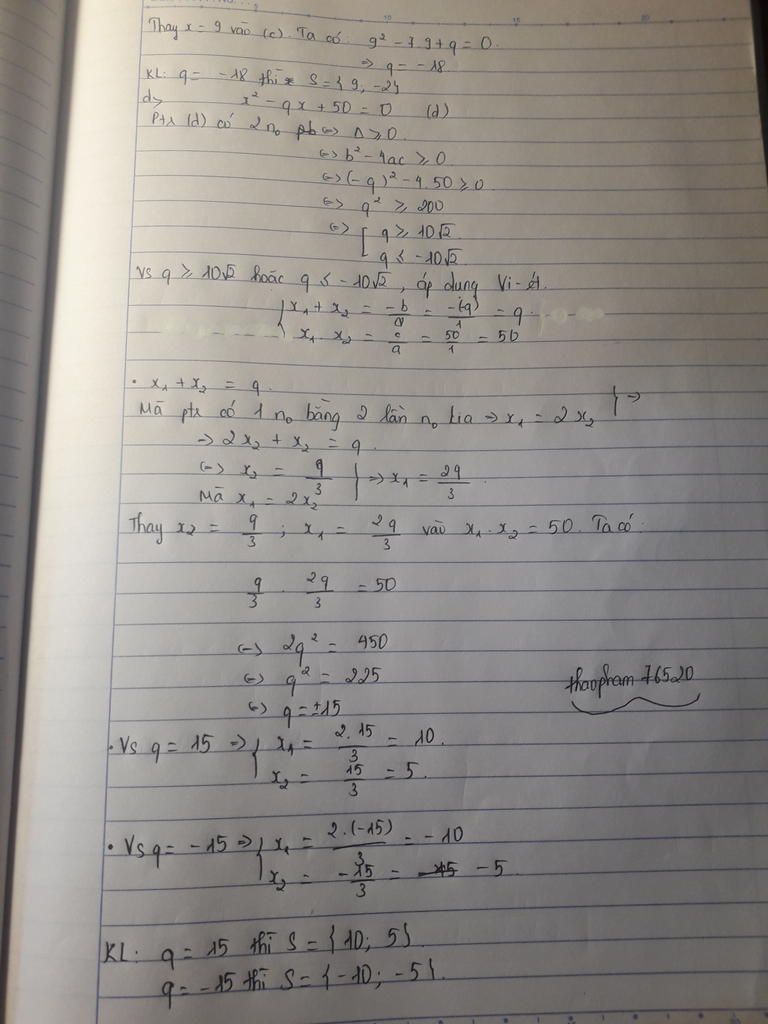 Thay x = 9 vào (c). Ta có: 9² - 7.9 + q = 0
=> q = -18.
KL: q = -18 thì S = {9, -2}
d> x² - qx + 50 = 0 (d)
Ptr (d) có 2 no pb <=> Δ ⩾ 0.
<=> b² - 4ac ⩾ 0
<=> (-q)² - 4.50 ⩾ 0
<=> q² ⩾ 200
<=> [ q ⩾ 10√2
q ⩽ -10√2
Vs q ⩾ 10√2 hoặc q ⩽ -10√2, áp dụng Vi-ét.
{ x₁ + x₂ = -b/a = -(-q)/1 = q
x₁ . x₂ = c/a = 50/1 = 50
• x₁ + x₂ = q
Mà ptr có 1 no bằng 2 lần no kia => x₁ = 2x₂ } =>
=> 2x₂ + x₂ = q
<=> x₂ = q/3 } => x₁ = 2q/3
Mà x₁ = 2x₂
Thay x₂ = q/3 ; x₁ = 2q/3 vào x₁ . x₂ = 50. Ta có:
q/3 . 2q/3 = 50
<=> 2q² = 450
<=> q² = 225
thaopham76520
<=> q = ±15
• Vs q = 15 => { x₁ = 2.15/3 = 10.
x₂ = 15/3 = 5.
• Vs q = -15 => { x₁ = 2.(-15)/3 = -10
x₂ = -15/3 = -5
KL: q = 15 thì S = {10; 5}
q = -15 thì S = {-10; -5}.